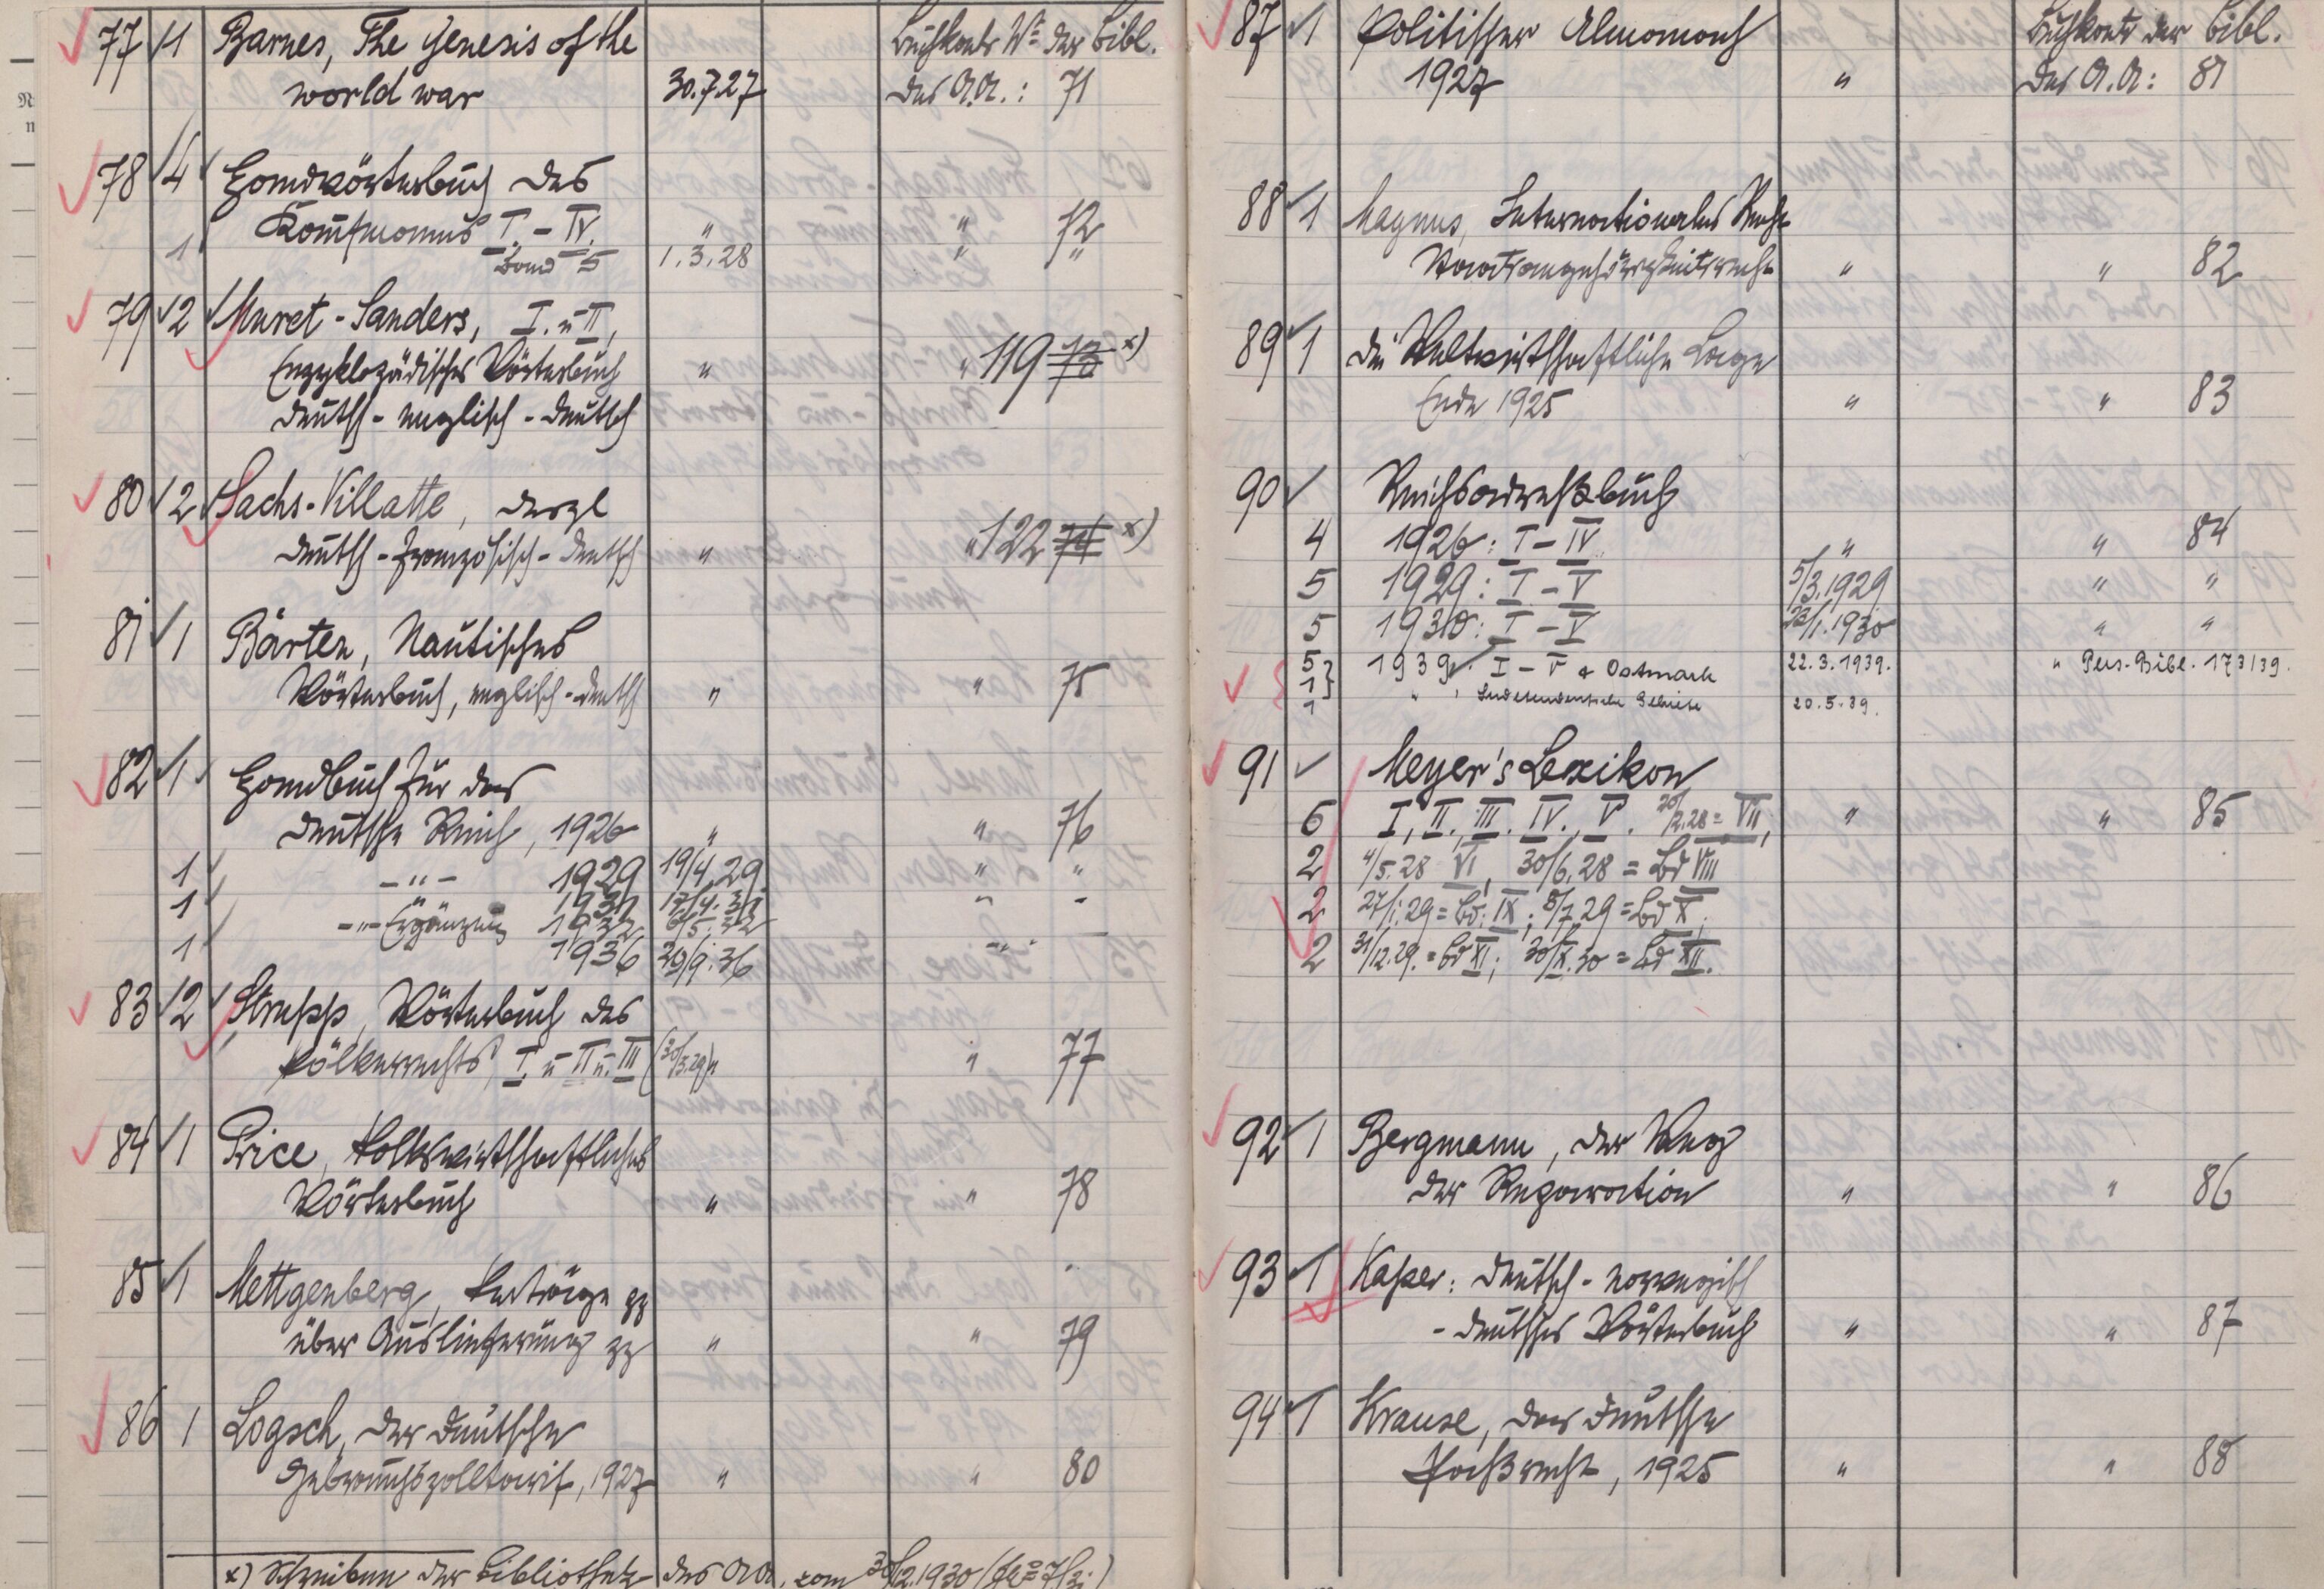 77 1 Barnes, The genesis of the Buchkontr Nº der Bibl.
world war 30.7.27 des A.A.: 71
78 4 Handwörterbuch des
Kaufmanns I. – IV. " " 72
1 Band 5 1.3.28 " "
79 2 Muret-Sanders, I. u II,
Enzyklopädisches Wörterbuch " " 119 73 x)
deutsch-englisch-deutsch
80 2 Sachs-Villatte, desgl
deutsch-französisch-deutsch " " 122 74 x)
81 1 Bärten, Nautisches
Wörterbuch, englisch-deutsch " " 75
82 1 Handbuch für das
deutsche Reich, 1926 " " 76
1 – " – 1929 19/4.29 " "
1 " 1931 17/4.31 " -
– " – Ergänzung 1932 6/5.32
1 1936 29/9.36 – " – –
83 2 Strupp, Wörterbuch des
Völkerrechts I. u II u. III (30/3.29) " " 77
84 1 Price, Volkswirtschaftliches
Wörterbuch " " 78
85 1 Mettgenberg, Verträge pp
über Auslieferung pp " " 79
86 1 Logsch, der deutsche
Gebrauchszolltarif, 1927 " " 80
x) Schreiben der Bibliothek des AA. vom 30/12.1930
87 1 Politischer Almanach Buchkontr der Bibl.
1927 " des A.A: 81
88 1 Magnus, Internationales Recht
Staatsangehörigkeitsrecht " " 82
89 1 die Weltwirtschaftliche Lage
Ende 1925 " " 83
90 Reichsadreßbuch
4 1926: I – IV " " 84
5 1929: I – V 5/3.1929 " "
5 1930: I – V 22/1.1930 " "
5 1939: I – V & Ostmark 22.3.1939. " Pers.-Bibl. 173/39.
1
1 " , Sudetendeutsche Gebiete 20.5.39.
91 Meyer's Lexikon
6 I, II. III. IV., V. 20/2.28 = VII, " " 85
2 4/5.28 VI, 30/6.28 = Bd VIII
2 27/1.29 = Bd. IX; 8/7.29 = Bd X,
2 31/12.29. = Bd XI; 30/X.30 = Bd XII.
92 1 Bergmann, der Weg
der Reparation " " 86
93 1 Kaper: deutsch-norwegisch
-deutsches Wörterbuch " " 87
94 1 Krause, das deutsche
Paßrecht, 1925 " " 88